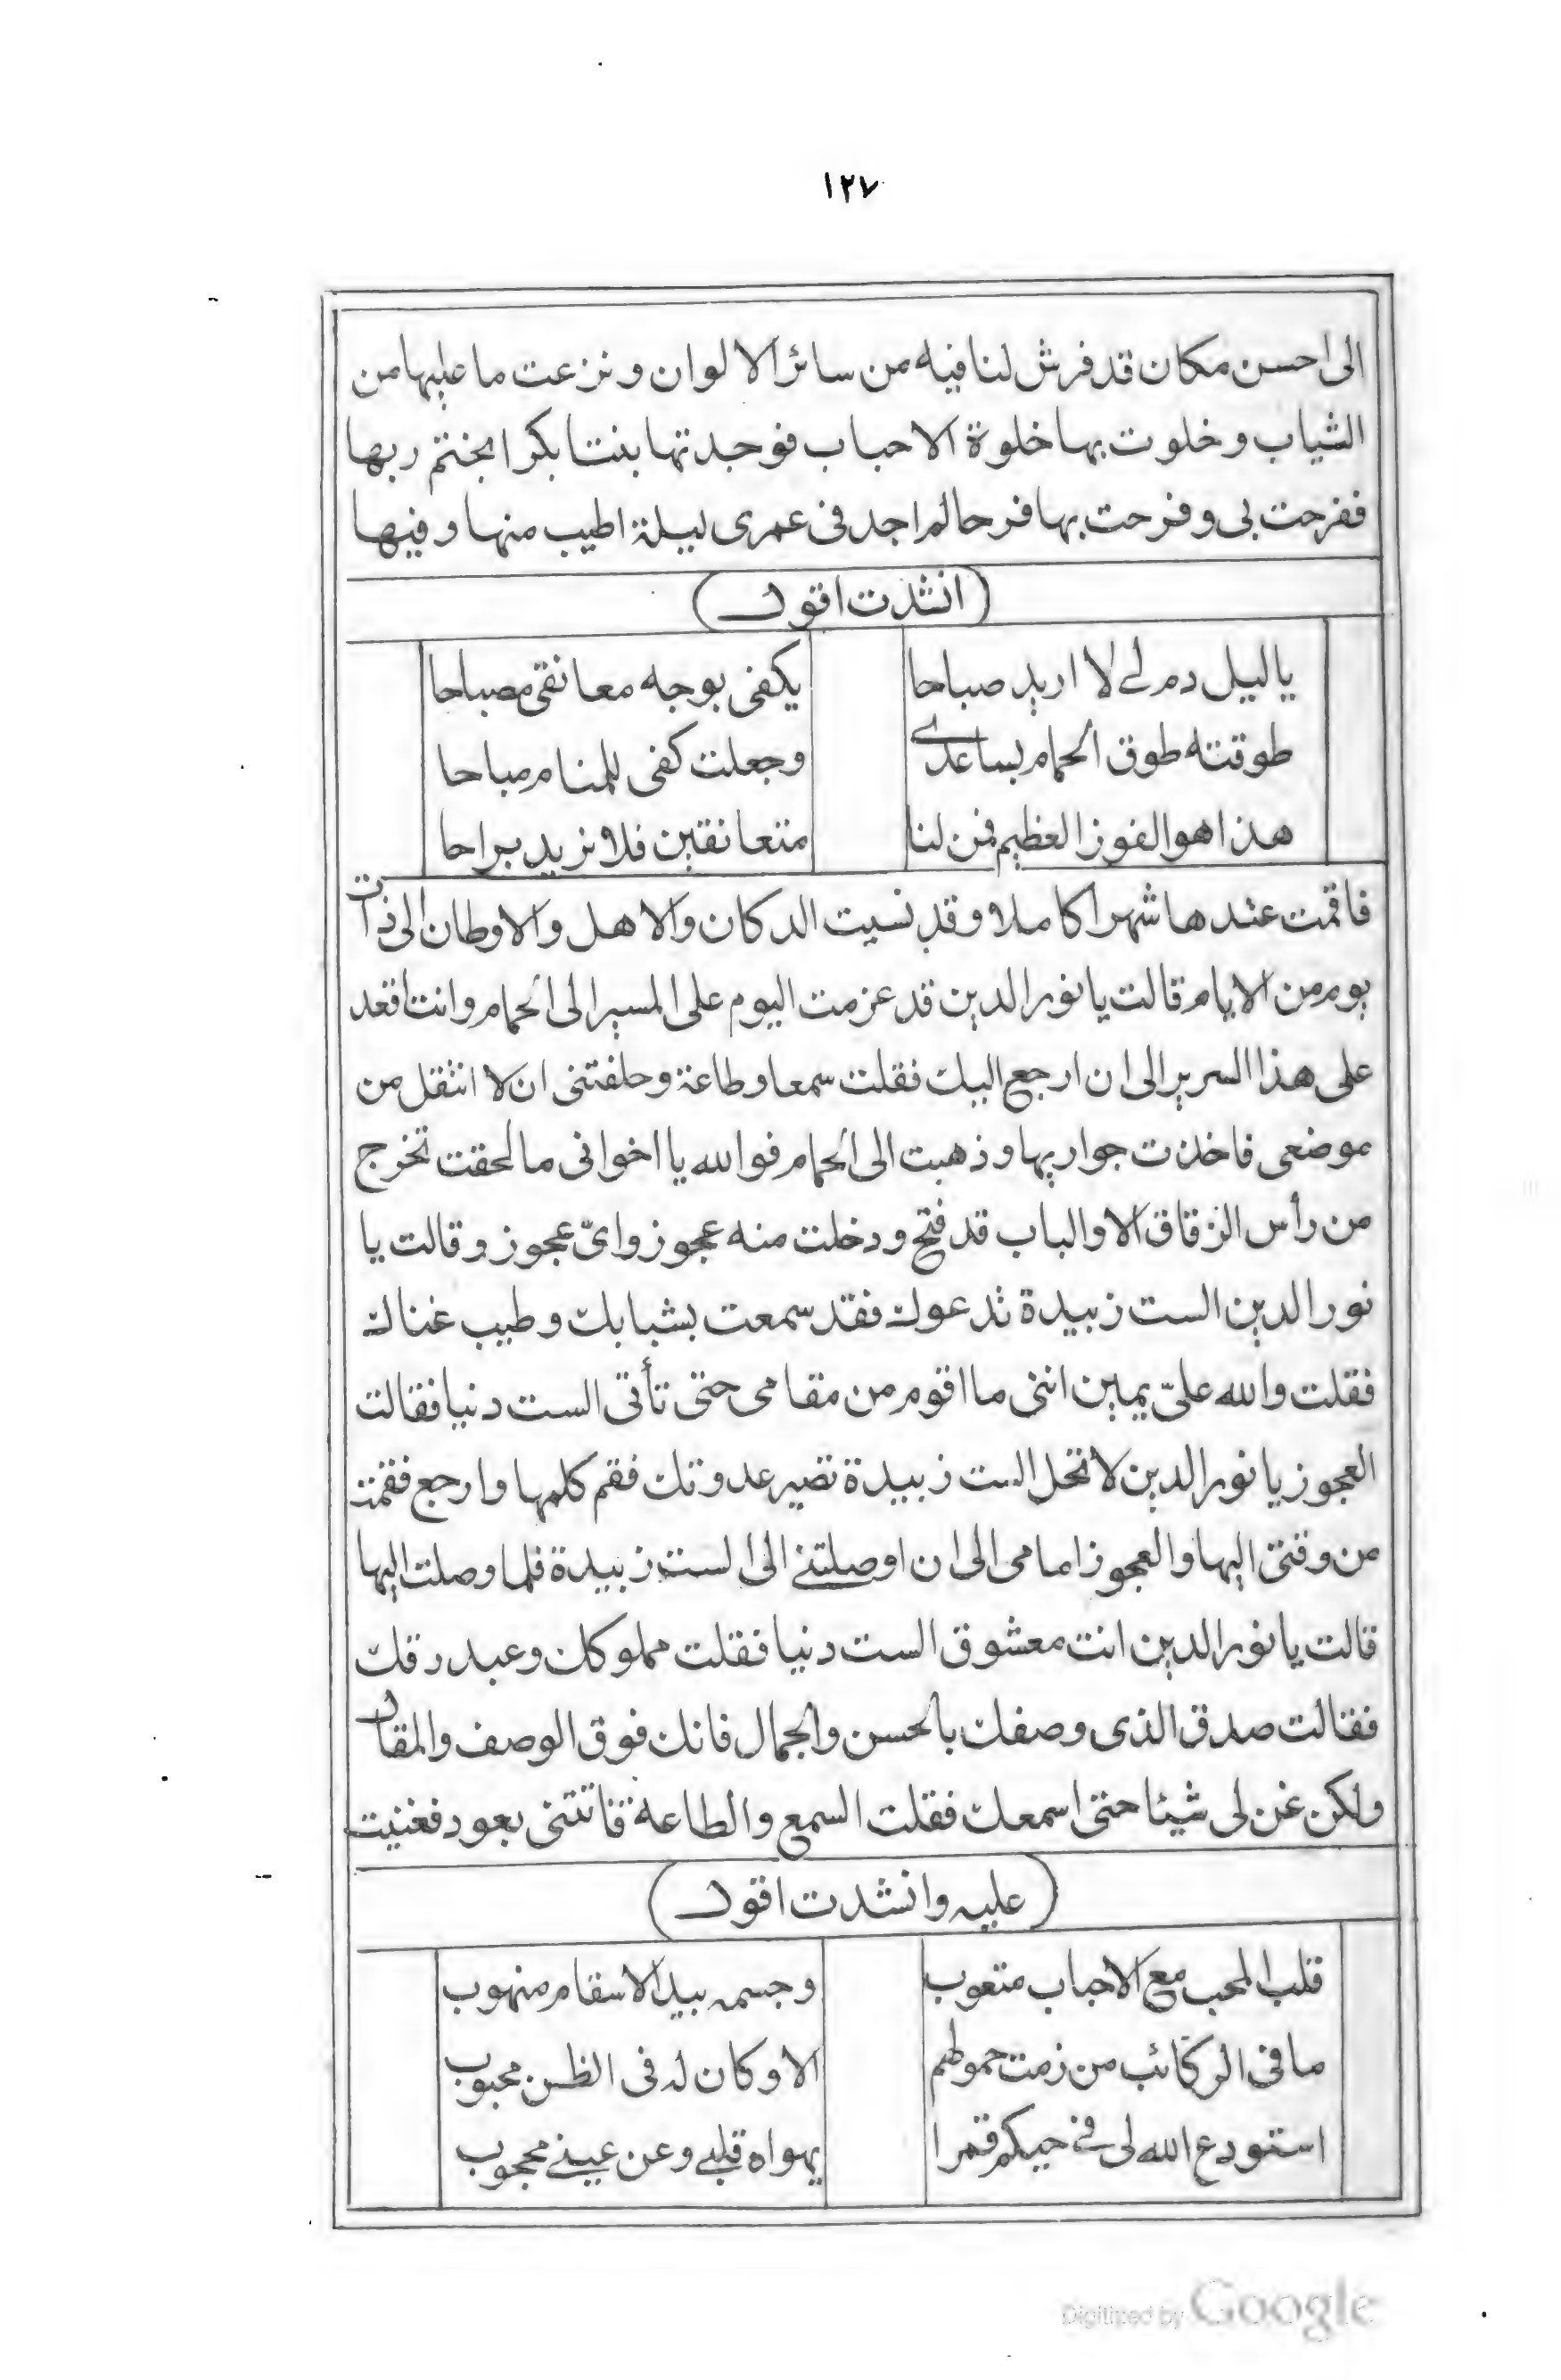 ١٢٧
الى احسن مكان قد فرش لنا فيه من سائر الالوان ونزعت ما عليها من
الثياب وخلوت بها خلوة الاحباب فوجدتها بنتا بكرا بختم ربها
ففرحت بى وفرحت بها فرحا لم اجد فى عمرى ليلة اطيب منها وفيها
(انشدت اقول)
ياليل دم لى لا اريد صباحا يكفى بوجه معانقى مصباحا
طوقته طوق الحمام بساعدى وجعلت كفى للمنام مباحا
هذا هو الفوز العظيم فمن لنا متعانقين فلا نريد براحا
فاقمت عندها شهرا كاملا وقد نسيت الدكان والاهل والاوطان الى ذات
يوم من الايام قالت يا نور الدين قد عزمت اليوم على المسير الى الحمام وانت اقعد
على هذا السرير الى ان ارجع اليك فقلت سمعا وطاعة وحلفتنى ان لا انتقل من
موضعى فاخذت جواريها وذهبت الى الحمام فوالله يا اخوانى ما لحقت تخرج
من رأس الزقاق الا والباب قد فتح ودخلت منه عجوز واىّ عجوز وقالت يا
نور الدين الست زبيدة تدعوك فقد سمعت بشبابك وطيب غناك
فقلت والله علىّ يمين اننى ما اقوم من مقامى حتى تأتى الست دنيا فقالت
العجوز يا نور الدين لا تخل الست زبيدة تصير عدوتك فقم كلمها وارجع فقمت
من وقتى اليها والعجوز امامى الى ان اوصلتنى الى الست زبيدة فلما وصلت اليها
قالت يا نور الدين انت معشوق الست دنيا فقلت مملوكك وعبد رقك
فقالت صدق الذى وصفك بالحسن والجمال فانك فوق الوصف والمقال
ولكن غن لى شيئا حتى اسمعك فقلت السمع والطاعة فاتتنى بعود فغنيت
(عليه وانشدت اقول)
قلب المحب مع الاحباب متعوب وجسمه بيد الاسقام منهوب
ما فى الركائب من زمت حمولهم الا وكان له فى الظعن محبوب
استودع الله لى فى حيكم قمرا يهواه قلبى وعن عينى محجوب
Digitized by Google